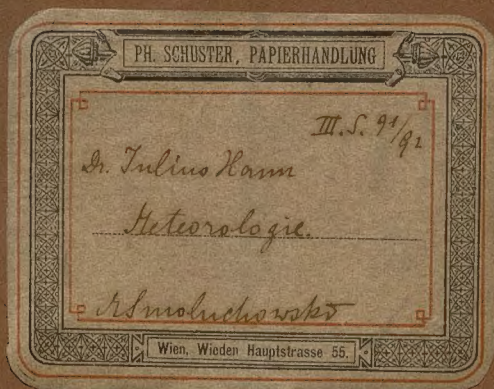 PH. SCHUSTER, PAPIERHANDLUNG
III. S. 91/92
Dr. Julius Hann
Meteorologie.
MSmoluchowski
Wien, Wieden Hauptstrasse 55.